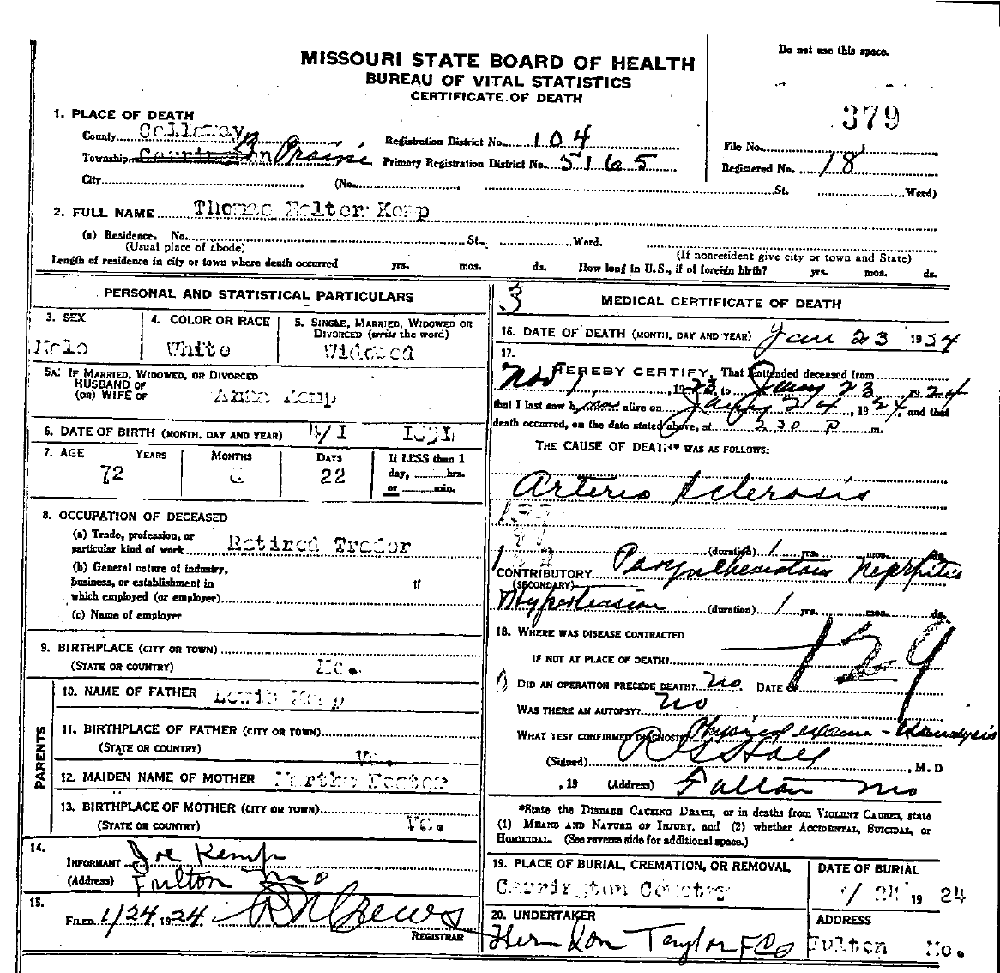 Do not use this space.
MISSOURI STATE BOARD OF HEALTH
BUREAU OF VITAL STATISTICS
CERTIFICATE OF DEATH
379
1. PLACE OF DEATH
County Callaway Registration District No. 104 File No.
Township Prairie Primary Registration District No. 5165 Registered No. 18
City (No. St. Ward)
2. FULL NAME Thomas Kemp
(a) Residence. No. St. Ward.
(Usual place of abode) (If nonresident give city or town and State)
Length of residence in city or town where death occurred yrs. mos. ds. How long in U.S., if of foreign birth? yrs. mos. ds.
PERSONAL AND STATISTICAL PARTICULARS
3. SEX 4. COLOR OR RACE 5. SINGLE, MARRIED, WIDOWED OR
DIVORCED (write the word)
Male White Widowed
5A. IF MARRIED, WIDOWED, OR DIVORCED
HUSBAND OF
(OR) WIFE OF Kemp
6. DATE OF BIRTH (MONTH, DAY AND YEAR)
7. AGE YEARS MONTHS DAYS If LESS than 1
day, hrs.
or min.
72 22
8. OCCUPATION OF DECEASED
(a) Trade, profession, or
particular kind of work Retired Trader
(b) General nature of industry,
business, or establishment in
which employed (or employer) "
(c) Name of employer
9. BIRTHPLACE (CITY OR TOWN)
(STATE OR COUNTRY) Mo.
PARENTS
10. NAME OF FATHER Kemp
11. BIRTHPLACE OF FATHER (CITY OR TOWN)
(STATE OR COUNTRY)
12. MAIDEN NAME OF MOTHER Martha
13. BIRTHPLACE OF MOTHER (CITY OR TOWN)
(STATE OR COUNTRY)
14.
INFORMANT Joe Kemp
(Address) Fulton Mo
15.
FILED 1/24, 1924 Crews
REGISTRAR
3 MEDICAL CERTIFICATE OF DEATH
16. DATE OF DEATH (MONTH, DAY AND YEAR) Jan 23 1924
17.
I HEREBY CERTIFY, That I attended deceased from
Nov 1, 1923, to Jany 23, 1924
that I last saw him alive on Jany 24, 1924, and that
death occurred, on the date stated above, at 230 P m.
THE CAUSE OF DEATH* WAS AS FOLLOWS:
Arterio Sclerosis
(duration) 1 yrs. mos. ds.
CONTRIBUTORY Nephritis
(SECONDARY)
Hypertension (duration) 1 yrs. mos. ds.
18. WHERE WAS DISEASE CONTRACTED
IF NOT AT PLACE OF DEATH?
129
DID AN OPERATION PRECEDE DEATH? no DATE OF
WAS THERE AN AUTOPSY? no
WHAT TEST CONFIRMED DIAGNOSIS? Physical exam - Urinalysis
(Signed) , M.D
, 19 (Address) Fulton Mo
*State the DISEASE CAUSING DEATH, or in deaths from VIOLENT CAUSES, state
(1) MEANS AND NATURE OF INJURY, and (2) whether ACCIDENTAL, SUICIDAL, or
HOMICIDAL. (See reverse side for additional space.)
19. PLACE OF BURIAL, CREMATION, OR REMOVAL DATE OF BURIAL
Carrington 1/24 1924
20. UNDERTAKER ADDRESS
Herndon Taylor F Co Fulton Mo.